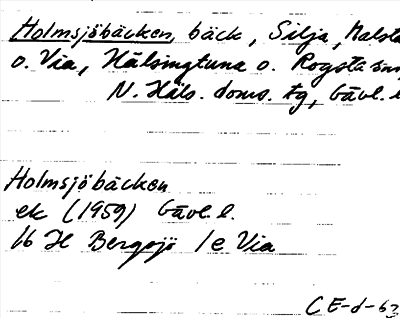 Holmsjöbäcken, bäck, Silja, Malsta
o. Via, Hälsingtuna o. Rogsta snr
N. Häls. doms. tg, Gävl. l.
Holmsjöbäcken
ek (1959) Gävl. l.
16 H Bergsjö 1e Via
CE-d-62